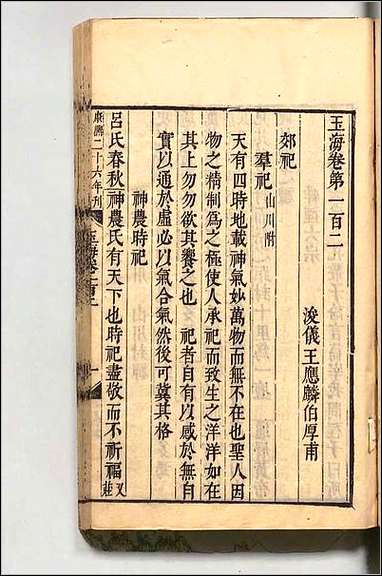 玉海卷第一百二
浚儀王應麟伯厚甫
郊祀
羣祀山川附
天有四時地載神氣妙萬物而無不在也聖人因
物之精制爲之極使人承祀而致生之洋洋如在
其上勿勿欲其饗之也　祀者自有以感於無自
實以通於虛必以氣合氣然後可冀其格
神農時祀
呂氏春秋神農氏有天下也時祀盡敬而不祈福
康熙二十六年刊
玉海卷一百二
一